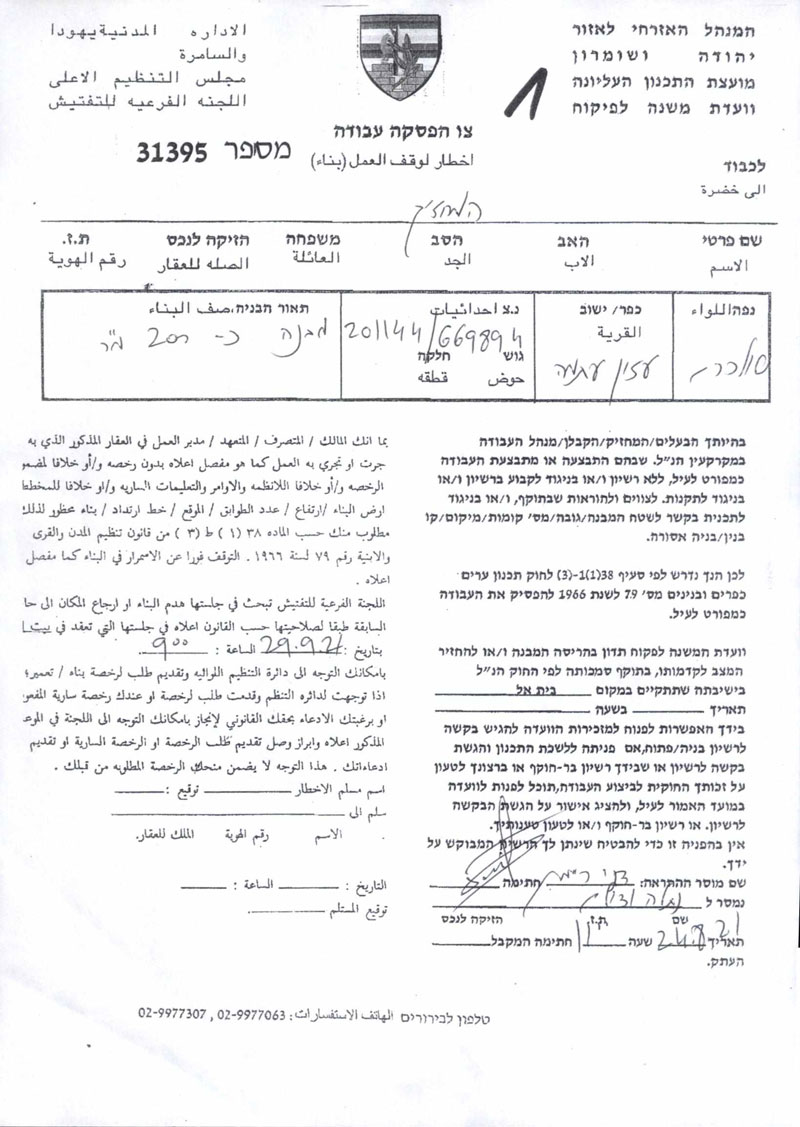 המנהל האזרחי לאזור
יהודה ושומרון
מועצת התכנון העליונה
וועדת משנה לפיקוח
الاداره المدنية يهودا
والسامرة
مجلس التنظيم الاعلى
اللجنه الفرعيه للتفتيش
1
צו הפסקה עבודה
اخطار لوقف العمل (بناء)
מספר 31395
לכבוד
الى خضرة
המחזיק
שם פרטי האב הסב משפחה הזיקה לנכס ת.ז.
الاسم الاب الجد العائلة الصله للعقار رقم الهوية
נפה/אללواء
כפר/ ישוב
القرية
עזון עתמה
נ.צ احداثيات
201144/669894
גוש חלקה
حوض قطعه
תאור הבניה، صف البناء
מבנה כ- 200 מ"ר
בהיותך הבעלים/המחזיק/הקבלן/מנהל העבודה
במקרקעין הנ"ל. שבהם התבצעה או מתבצעת העבודה
כמפורט לעיל, ללא רשיון ו/או בניגוד לקבוע ברשיון ו/או
בניגוד לתקנות. לצווים ולהוראות שבתוקף, ו/או בניגוד
לתכנית בקשר לשטח המבנה/גובה/מס' קומות/מיקום/קו
בנין/בניה אסורה.
לכן הנך נדרש לפי סעיף 38(1)-(3) לחוק תכנון ערים
כפרים ובנינים מס' 79 לשנת 1966 להפסיק את העבודה
כמפורט לעיל.
וועדת המשנה לפקוח תדון בהריסה המבנה ו/או להחזיר
המצב לקדמותו, בתוקף סמכותה לפי החוק הנ"ל
בישיבתה שתתקיים במקום בית אל
תאריך בשעה
בידך האפשרות לפנות למזכירות הוועדה להגיש בקשה
לרשיון בניה/פתוח,אם פניתה ללשכת התכנון והגשת
בקשה לרשיון או שבידך רשיון בר-תוקף או ברצונך לטעון
על זכותך החוקית לביצוע העבודה,תוכל לפנות לוועדה
במועד האמור לעיל, ולהציג אישור על הגשת הבקשה
לרשיון. או רשיון בר-תוקף ו/או לטעון טענותיך.
אין בהפניה זו כדי להבטיח שינתן לך הרשיון המבוקש על
ידך.
שם מוסר ההתראה: חתימה
נמסר ל
שם ת.ז הזיקה לנכס
תאריך 24.8.21 שעה 11 חתימה המקבל
העתק.
بما انك المالك / المتصرف / المتعهد / مدير العمل في العقار المذكور الذي به
جرت او تجري به العمل كما هو مفصل اعلاه بدون رخصه و/أو خلافا لمضمو
الرخصه و/أو خلافا للانظمه والاوامر والتعليمات الساريه و/او خلافا للمخطط
ارض البناء /ارتفاع / عدد الطوابق / الموقع / خط ارتداد / بناء محظور لذلك
مطلوب منك حسب الماده ٣٨ ( ١ ) ط ( ٣ ) من قانون تنظيم المدن والقرى
والابنية رقم ٧٩ لسنة ١٩٦٦ . التوقف فورا عن الاسمرار في البناء كما مفصل
اعلاه .
اللجنة الفرعية للتفتيش تبحث في جلستها هدم البناء او ارجاع المكان الى حا
السابقة طبقا لصلاحيتها حسب القانون اعلاه في جلستها التي تعقد في بيت ا
بتاريخ : 29.9.21 الساعة : 9:00
بامكانك التوجه الى دائرة التنظيم اللوائيه وتقديم طلب لرخصة بناء / تعمير؛
اذا توجهت لدائره التنظم وقدمت طلب لرخصة او عندك رخصة سارية المفعو
او برغبتك الادعاء بحقك القانوني لإنجاز بامكانك التوجه الى اللجنة في الموع
المذكور اعلاه وابراز وصل تقديم طلب الرخصة او الرخصة السارية او تقديم
ادعاءاتك . هذا التوجه لا يضمن منحك الرخصة المطلوبه من قبلك .
اسم مسلم الاخطار توقيع :
سلم الى
الاسم رقم الهوية الملك للعقار.
التاريخ : الساعة :
توقيع المستلم
טלפון לבירורים الهاتف الاستفسارات: 02-9977063 , 02-9977307